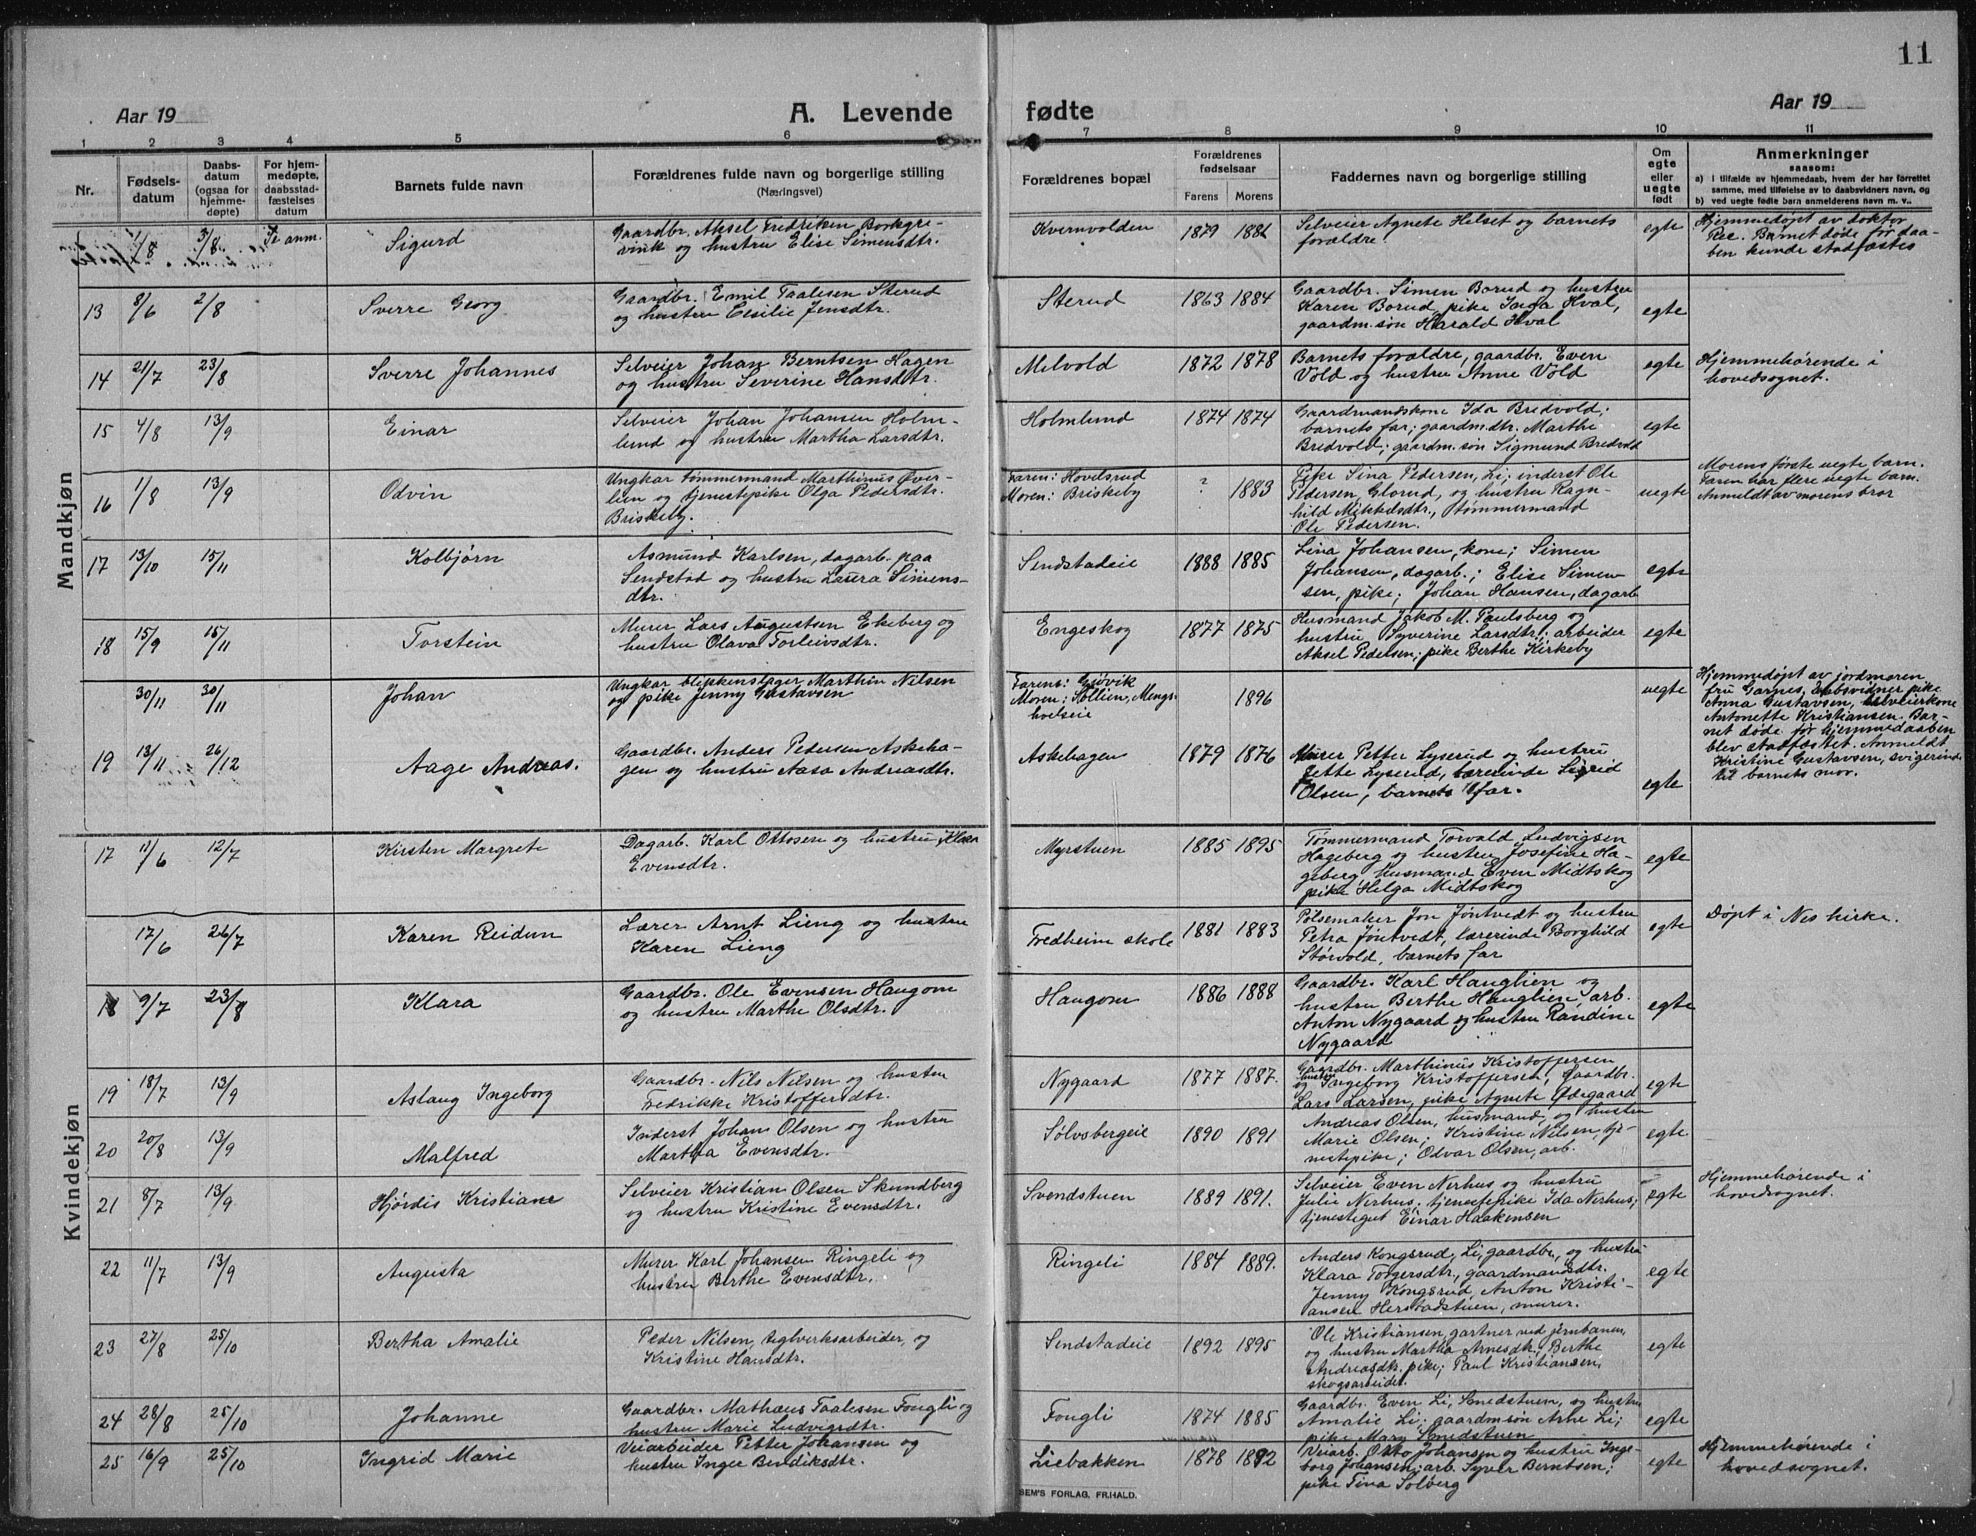 11
Aar 19
A. Levende
fødte
Aar 19
1 2 3 4 5 6 7 8 9 10 11
Nr.
Fødsels-
datum
Daabs-
datum
(ogsaa for
hjemme-
døpte)
For hjem-
medøpte,
daabsstad-
fæstelses
datum
Barnets fulde navn
Forældrenes fulde navn og borgerlige stilling
(Næringsvei)
Forældrenes bopæl
Forældrenes
fødselsaar
Farens Morens
Faddernes navn og borgerlige stilling
Om
egte
eller
uegte
født
Anmerkninger
saasom:
a) i tilfælde av hjemmedaab, hvem der har forrettet
samme, med tilføielse av to daabsvidners navn, og
b) ved uegte fødte barn anmelderens navn m. v..
Mandkjøn
/8 3/8 Se anm. Sigurd
Gaardbr. Aksel Fredriksen Borkgre-
vink og hustru Elise Simensdtr.
Kvernvolden 1879 1881
Selveier Agnete Helset og barnets
forældre
egte
Hjemmedøpt av doktor
Ree. Barnet døde før daa-
ben kunde stadfæstes
13 8/6 2/8 Sverre Georg
Gaardbr. Emil Taalesen Sterud
og hustru Cesilie Jensdtr.
Sterud 1863 1884
Gaardbr. Simen Borud og hustru
Karen Borud, pike Inga Hval,
gaardm.søn Harald Hval
egte
14 21/7 23/8 Sverre Johannes
Selveier Johan Berntsen Hagen
og hustru Severine Hansdtr.
Melvold 1872 1878
Barnets forældre, gaardbr. Even
Vold og hustru Anne Vold
egte
Hjemmehørende i
hovedsognet.
15 4/8 13/9 Einar
Selveier Johan Johansen Holm-
lund og hustru Martha Larsdtr.
Holmlund 1874 1874
Gaardmandskone Ida Bredvold;
barnets far; gaardm.dtr. Marthe
Bredvold; gaardm.søn Sigmund Bredvold
egte
16 1/8 13/9 Odvin
Ungkar tømmermand Marthinus Øver-
lien og tjenestepike Olga Pedersdtr.
Briskeby.
Faren: Hovelsrud
Moren: Briskeby
? 1883
Pike Sina Pedersen, Li; inderst Ole
Pedersen, Glorud, og hustru Ragn-
hild Mikkelsdtr., tømmermand
Ole Pedersen.
uegte
Morens første uegte barn.
Faren har flere uegte barn.
Anmeldt av morens bror
17 13/10 15/11 Kolbjørn
Asmund Karlsen, dagarb. paa
Sendstad og hustru Laura Simens-
dtr.
Sendstadeie 1888 1885
Lina Johansen, kone; Simen
Johansen, dagarb.; Elise Simen-
sen, pike; Johan Hansen, dagarb
egte
18 15/9 15/11 Torstein
Murer Lars Augustsen Ekeberg og
hustru Olava Torleivsdtr.
Engeskog 1877 1875
Husmand Jakob M. Paulsberg og
hustru Syverine Larsdtr.; arbeider
Aksel Pedersen; pike Berthe Kirkeby
egte
30/11 30/11 Johan
Ungkar blikkenslager Marthin Nilsen
og pike Jenny Gustavsen
Farens: Gjøvik
Moren: Sollien, Mengs-
hoelseie
1896
uegte
Hjemmedøpt av jordmoren
fru Garnes, Daabsvidner pike
Anna Gustavsen, selveierkone
Antonette Kristiansen. Bar-
net døde før hjemmedaaben
blev stadfæstet. Anmeldt
Kristine Gustavsen, svigerinde
til barnets mor.
19 13/11 26/12 Aage Andreas.
Gaardbr. Anders Pedersen Askeha-
gen og hustru Aasa Andreasdtr.
Askehagen 1879 1876
Murer Petter Lyserud og hustru
Jette Lyserud, lærerinde Sigrid
Olsen, barnets far.
egte
Kvindekjøn
17 11/6 12/7 Kirsten Margrete
Dagarb. Karl Ottosen og hustru Klara
Evensdtr.
Myrstuen 1885 1895
Tømmermand Torvald Ludvigsen
Hageberg og hustru Josefine Ha-
geberg, husmand Even Midtskog
pike Helga Midtskog
egte
17/6 26/7 Karen Reidun
Lærer Arnt Lieng og hustru
Karen Lieng
Fredheim skole 1881 1883
Pølsemaker Jon Jøntvedt og hustru
Petra Jøntvedt, lærerinde Borghild
Størvold, barnets far
egte
Døpt i Nes kirke.
18 9/7 23/8 Klara
Gaardbr. Ole Evensen Haugom
og hustru Marthe Olsdtr.
Haugom 1886 1888
Gaardbr. Karl Hauglien og
hustru Berthe Hauglien, arb.
Anton Nygaard og hustru Randine
Nygaard
egte
19 18/7 13/9 Aslaug Ingeborg
Gaardbr. Nils Nilsen og hustru
Fredrikke Kristoffersdtr.
Nygaard 1877 1887.
Gaardbr. Marthinus Kristoffersen
og hustru Ingeborg Kristoffersen, Gaardbr.
Lars Larsen, pike Agnete Ødegaard
egte
20 20/8 13/9 Malfred
Inderst Johan Olsen og hustru
Martha Evensdtr.
Sølvsbergeie 1890 1891
Andreas Olsen, husmand, og hustru
Marie Olsen; Kristine Nilsen, tje-
nestepike; Odvar Olsen, arb.
egte
21 8/7 13/9 Hjørdis Kristiane
Selveier Kristian Olsen Skundberg
og hustru Kristine Evensdtr.
Svendstuen 1889 1891.
Selveier Even Nerhus og hustru
Julie Nerhus, tjenestepike Ida Nerhus;
tjenestegut Einar Haakensen
egte
Hjemmehørende i
hovedsognet.
22 11/7 13/9 Augusta
Murer Karl Johansen Ringeli og
hustru Berthe Evensdtr.
Ringeli 1884 1889.
Anders Kongsrud, Li, gaardbr., og hustru
Klara Torgersdtr., gaardmandsdtr.
Jenny Kongsrud, Anton Kristi-
ansen Herstadstuen, murer.
egte
23 27/8 25/10 Bertha Amalie
Peder Nilsen, teglverksarbeider, og
Kristine Hansdtr.
Sendstadeie 1892 1895
Ole Kristiansen, gartner ved jernbanen,
og hustru Martha Arnesdtr.; Berthe
Andreasdtr. pike; Paul Kristiansen,
skogsarbeider.
egte
24 28/8 25/10 Johanne
Gaardbr. Mathæus Taalesen Fougli og
hustru Marie Ludvigsdtr.
Fougli 1874 1885
Gaardbr. Even Li, Smedstuen, og hustru
Amalie Li; gaardm.søn Arne Li;
pike Mary Smedstuen
egte
25 16/9 25/10 Ingrid Marie
Veiarbeider Petter Johansen og
hustru Inger Bendiksdtr.
Liebakken 1878 1882
Veiarb. Otto Johansen og hustru Inge-
borg Johansen; arb. Syver Berntsen;
pike Tina Solberg
egte
Hjemmehørende i
hovedsognet.
SEM'S FORLAG, FR.HALD.